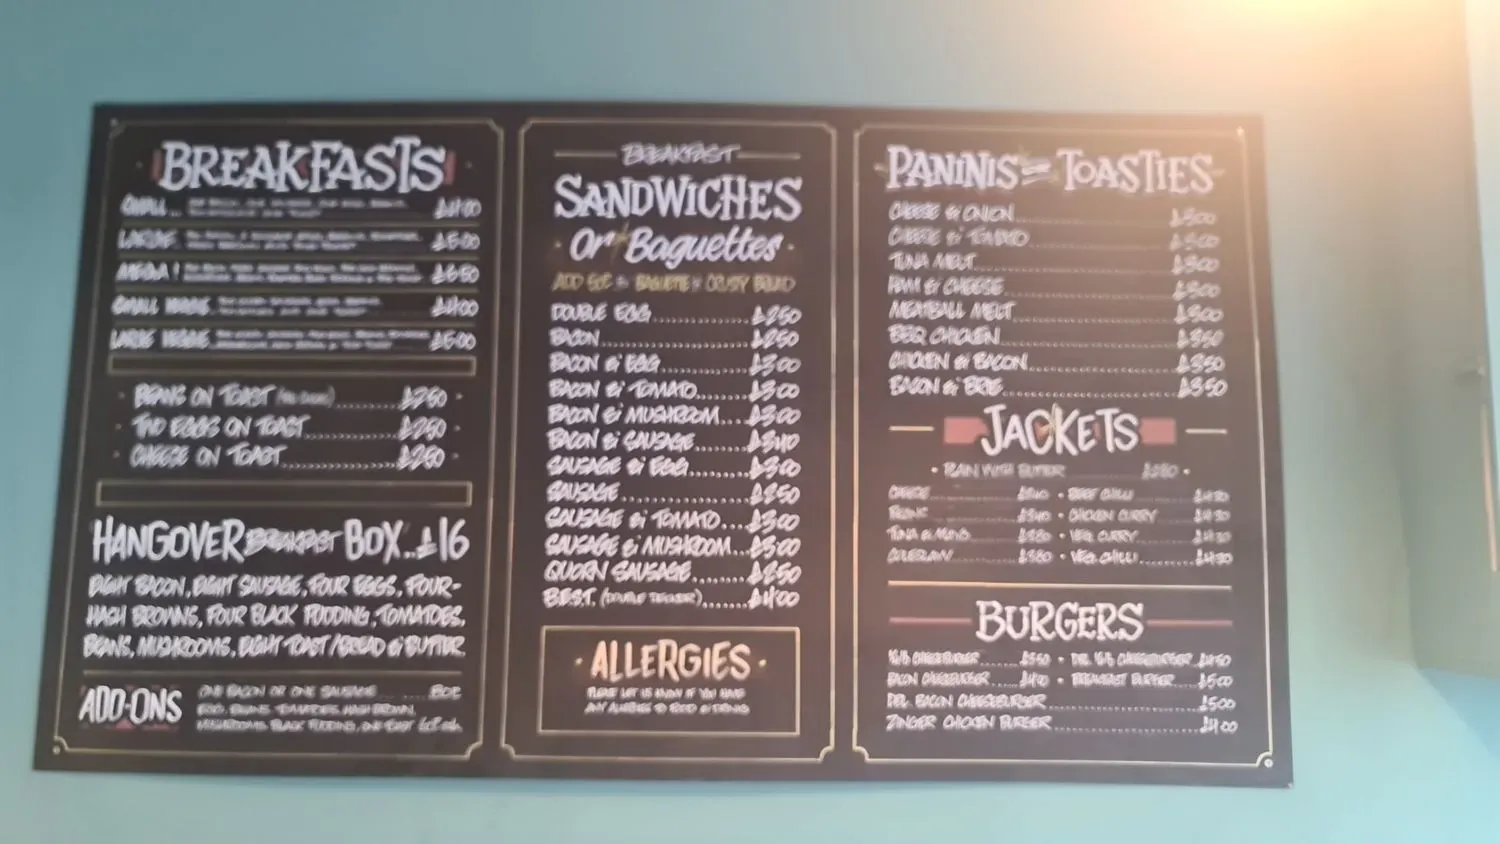 BREAKFASTS
SMALL £4.00
LARGE £5.00
MEGA! £6.50
SMALL VEGGIE £4.00
LARGE VEGGIE £5.00
BEANS ON TOAST £2.50
TWO EGGS ON TOAST £2.50
CHEESE ON TOAST £2.50
HANGOVER BREAKFAST BOX.. £16
EIGHT BACON, EIGHT SAUSAGE, FOUR EGGS, FOUR-
HASH BROWNS, FOUR BLACK PUDDING, TOMATOES,
BEANS, MUSHROOMS, EIGHT TOAST/BREAD & BUTTER.
ADD-ONS
ONE BACON OR ONE SAUSAGE 80P
EGG, BEANS, TOMATOES, HASH BROWN,
MUSHROOMS, BLACK PUDDING, ONE TOAST 60P ea.
BREAKFAST
SANDWICHES
Or Baguettes
ADD 50P BAGUETTE CRUSTY BREAD
DOUBLE EGG £2.50
BACON £2.50
BACON & EGG £3.00
BACON & TOMATO £3.00
BACON & MUSHROOM £3.00
BACON & SAUSAGE £3.40
SAUSAGE & EGG £3.00
SAUSAGE £2.50
SAUSAGE & TOMATO £3.00
SAUSAGE & MUSHROOM £3.00
QUORN SAUSAGE £2.50
B.E.S.T. (DOUBLE DECKER) £4.00
ALLERGIES
PLEASE LET US KNOW IF YOU HAVE
ANY ALLERGIES TO FOOD & DRINKS
PANINIS TOASTIES
CHEESE & ONION £3.00
CHEESE & TOMATO £3.00
TUNA MELT £3.00
HAM & CHEESE £3.00
MEATBALL MELT £3.00
BBQ CHICKEN £3.50
CHICKEN & BACON £3.50
BACON & BRIE £3.50
JACKETS
PLAIN WITH BUTTER
CHEESE £3.40 • BEEF CHILLI £4.30
BEANS £3.40 • CHICKEN CURRY £4.30
TUNA & MAYO £3.80 • VEG. CURRY £4.30
COLESLAW £3.80 • VEG. CHILLI £4.30
BURGERS
1/4lb CHEESEBURGER £3.50 • DBL 1/4lb CHEESEBURGER £4.50
BACON CHEESEBURGER £4.00 • BREAKFAST BURGER £5.00
DBL BACON CHEESEBURGER £5.00
ZINGER CHICKEN BURGER £4.00